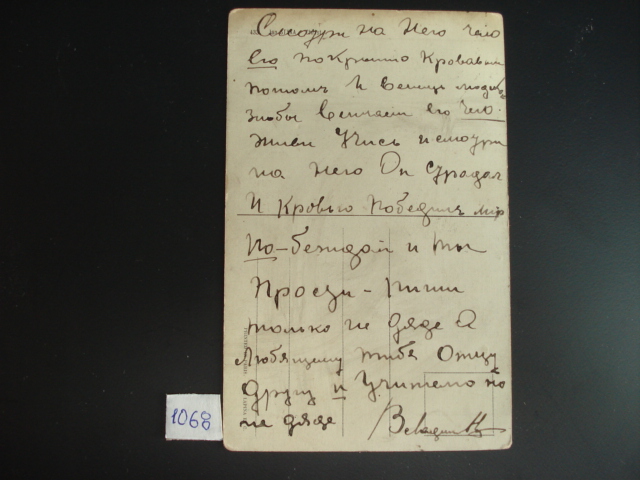 Смотри на Него чело
Его покрыто Кровавым
потомъ И венецъ людской
злобы венчает его чело.
Живи Учись и смотри
на него Он страдал
И Кровью Победилъ мiр
По-беждай и ты
Прости - пиши
только не дяде А
Любящему тебя Отцу
Другу и Учителю но
не дяде
1068